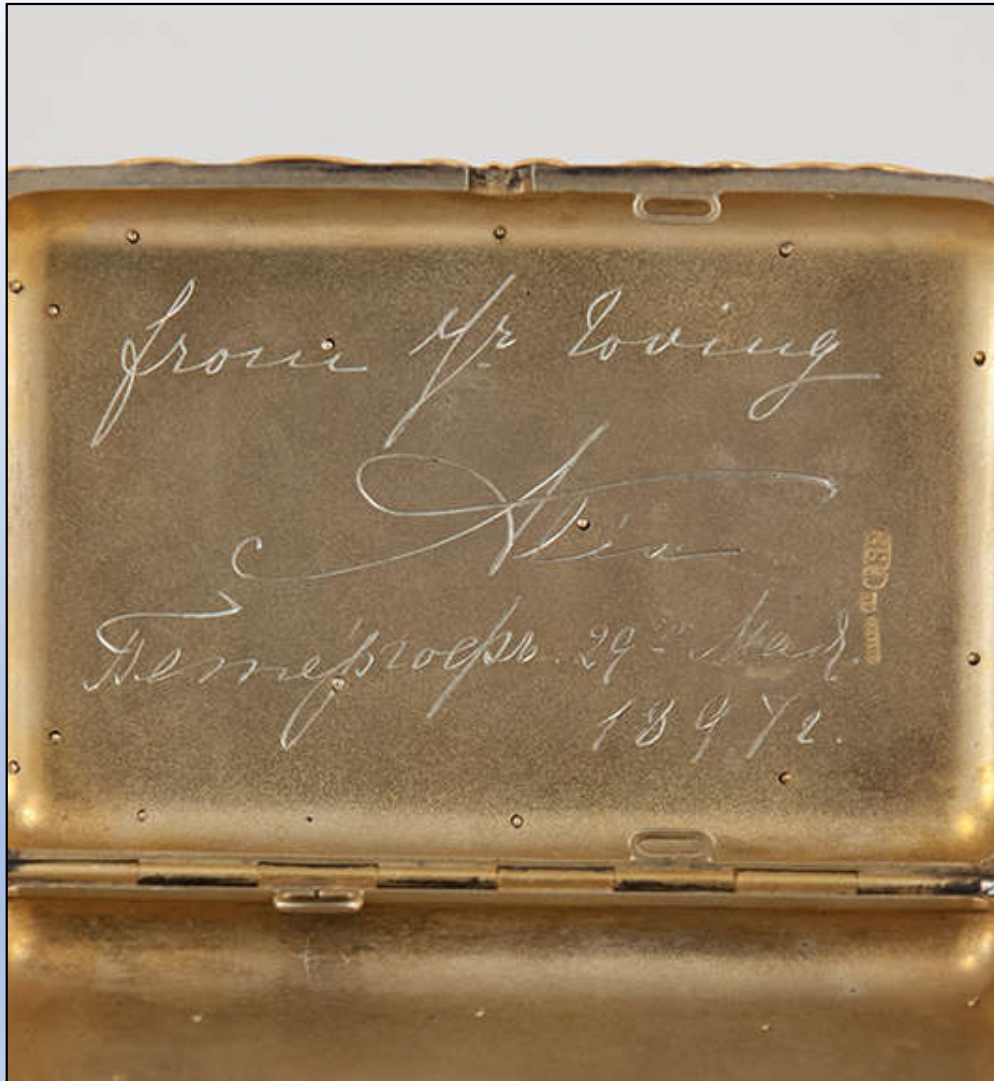 from yr loving
Alix
Петергофъ. 29го Мая.
1897г.